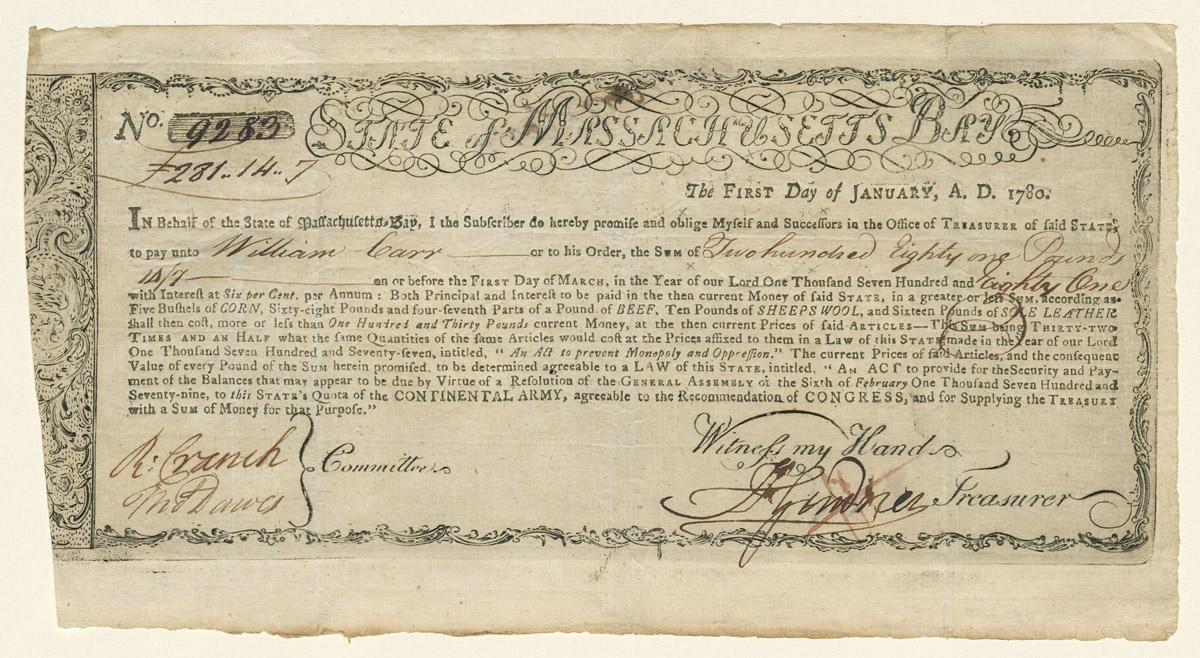 No. 9283
£281..14..7
STATE of MASSACHUSETTS BAY
The FIRST Day of JANUARY, A. D. 1780.
IN Behalf of the State of Massachusetts-Bay, I the Subscriber do hereby promise and oblige Myself and Successors in the Office of TREASURER of said STATE,
to pay unto William Carr or to his Order, the SUM of Two hundred Eighty one Pounds
14/7 on or before the FIRST Day of MARCH, in the Year of our Lord One Thousand Seven Hundred and Eighty One
with Interest at Six per Cent. per Annum : Both Principal and Interest to be paid in the then current Money of said STATE, in a greater or less SUM, according as
Five Bushels of CORN, Sixty-eight Pounds and four-seventh Parts of a Pound of BEEF, Ten Pounds of SHEEPS WOOL, and Sixteen Pounds of SOLE LEATHER
shall then cost, more or less than One Hundred and Thirty Pounds current Money, at the then current Prices of said ARTICLES—This SUM being THIRTY-TWO
TIMES AND AN HALF what the same Quantities of the same Articles would cost at the Prices affixed to them in a Law of this STATE made in the Year of our Lord
One Thousand Seven Hundred and Seventy-seven, intitled, " An Act to prevent Monopoly and Oppression." The current Prices of said Articles, and the consequent
Value of every Pound of the SUM herein promised, to be determined agreeable to a LAW of this STATE, intitled, "AN ACT to provide for the Security and Pay-
ment of the Balances that may appear to be due by Virtue of a Resolution of the GENERAL ASSEMBLY of the Sixth of February One Thousand Seven Hundred and
Seventy-nine, to this STATE'S Quota of the CONTINENTAL ARMY, agreeable to the Recommendation of CONGRESS, and for Supplying the TREASURY
with a SUM of Money for that Purpose."
R: Cranch
Thos Dawes
Committee
Witness my Hand
H Gardner Treasurer